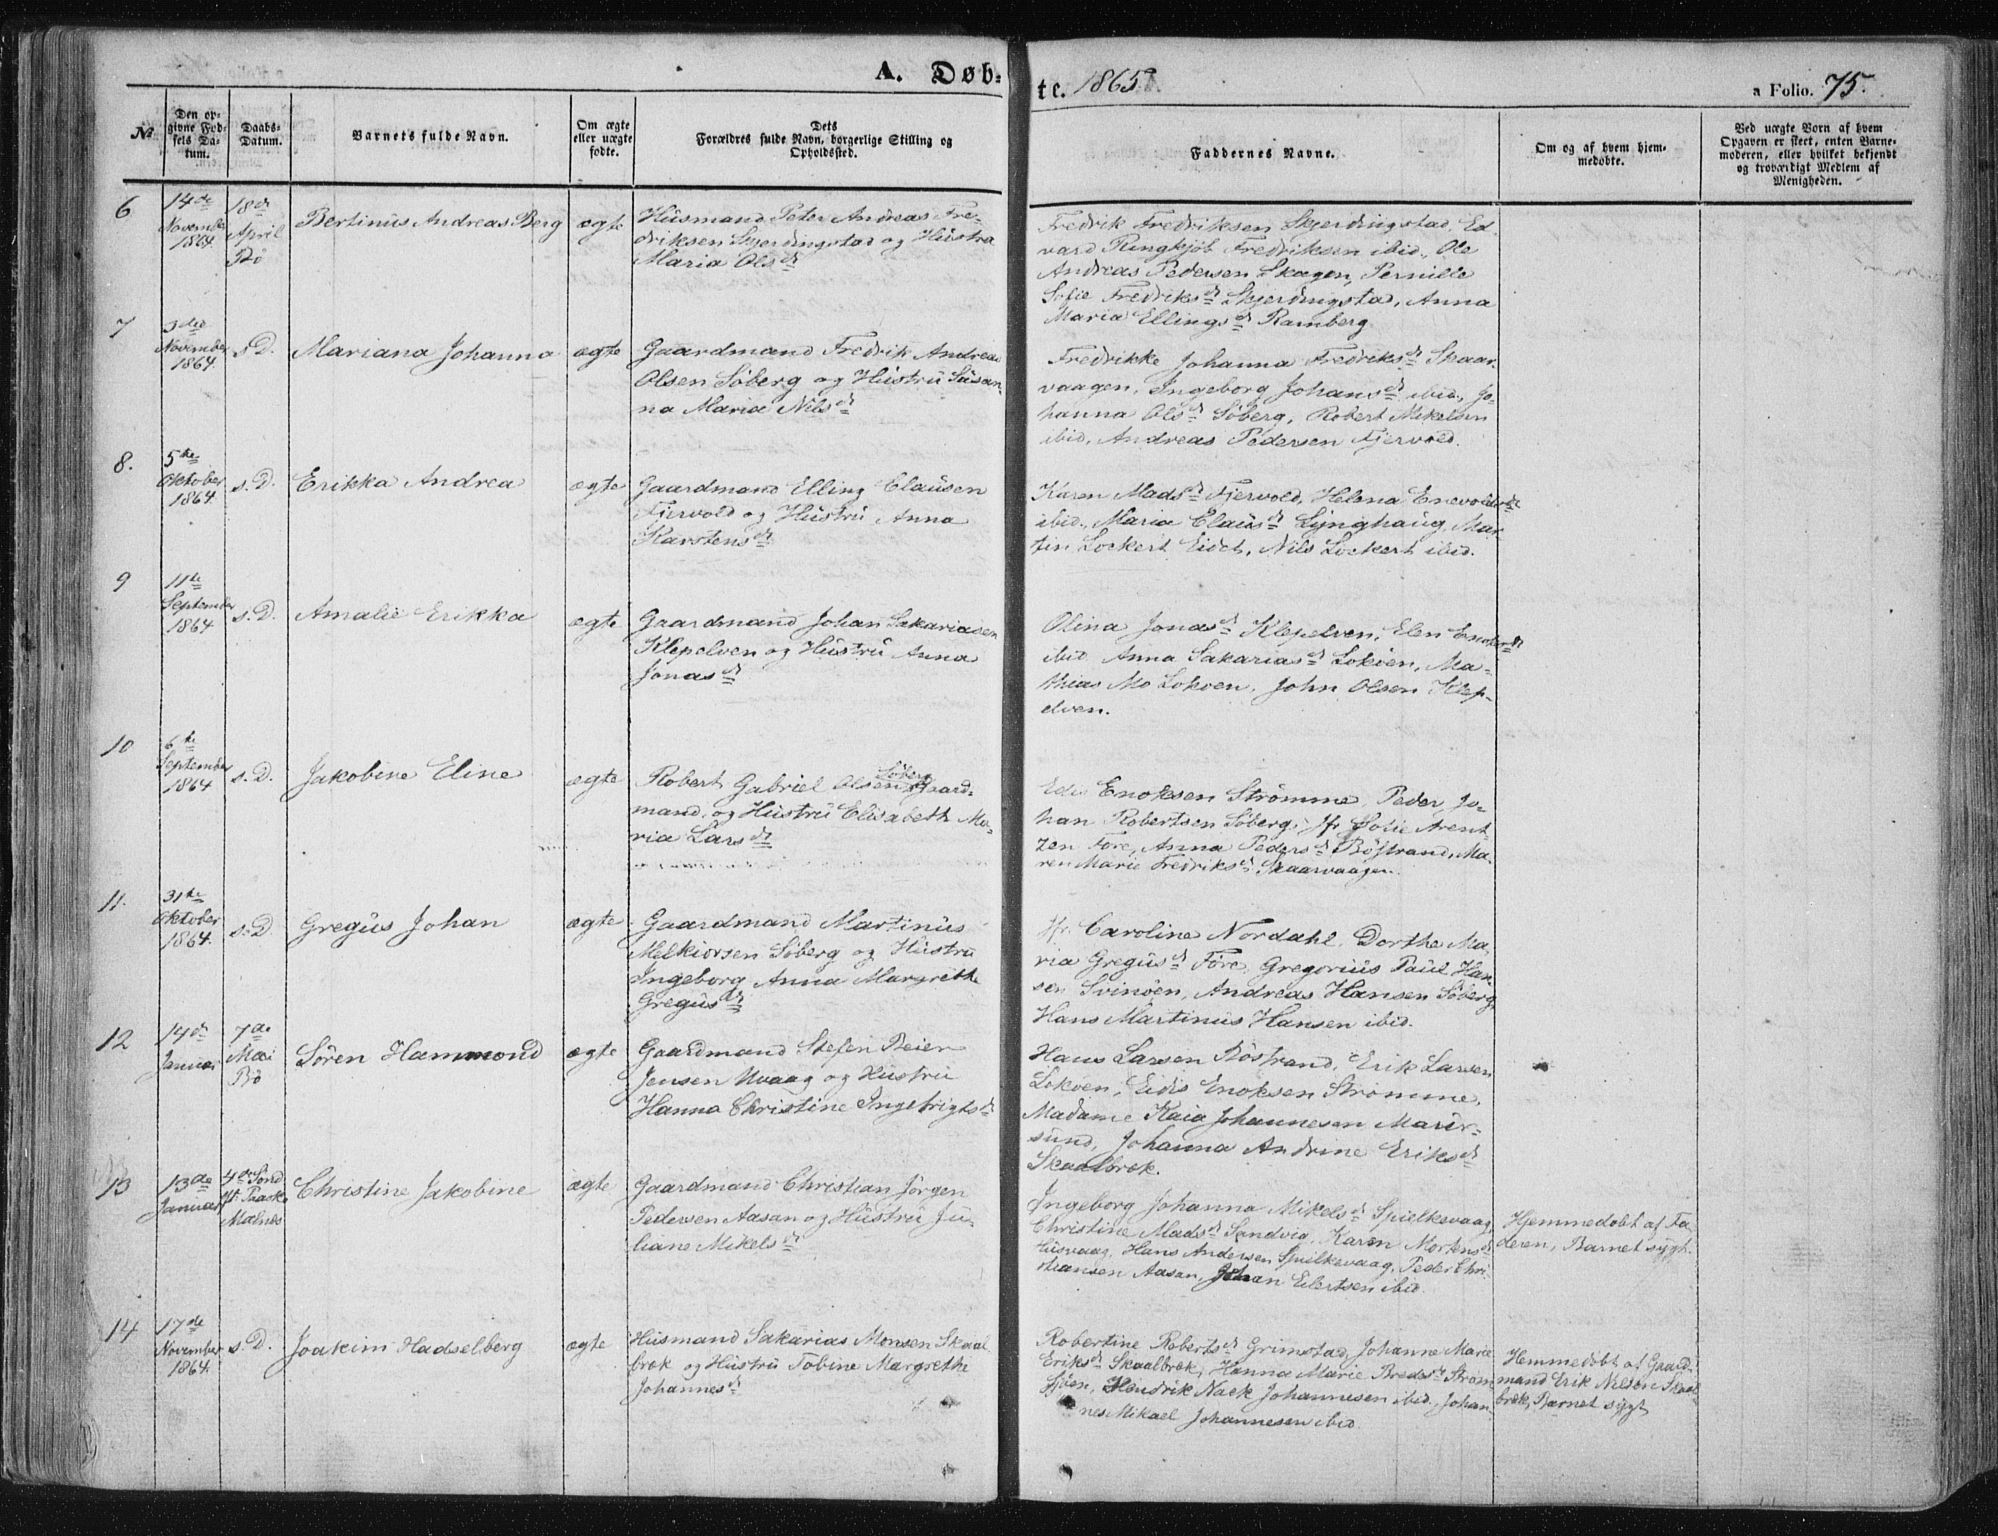 A. Døb-
te. 1865.
a Folio. 75.
№
Den op-
givne Fød-
sels Da-
tum.
Daabs-
Datum.
Barnets fulde Navn.
Om ægte
eller uægte
fødte.
Dets
Forældres fulde Navn, borgerlige Stilling og
Opholdssted.
Faddernes Navne.
Om og af hvem hjem-
medøbte.
Ved uægte Børn af hvem
Opgaven er skeet, enten Barne-
moderen, eller hvilket bekjendt
og troværdigt Medlem af
Menigheden.
6
14de
November
1864
18de
April
Bö
Bertinus Andreas Berg
ægte
Husmand Peter Andreas Fre-
driksen Skjerdingstad og Hustru
Maria Olsdr
Fredrik Fredriksen Skjerdingstad, Ed-
vard Ringkjøb Fredriksen ibid., Ole
Andreas Pedersen Skagen, Pernille
Sofie Fredriksdr Skjerdingstad, Anna
Maria Ellingsdr Ramberg
7
3die
November
1864
s. D.
Mariana Johanna
ægte
Gaardmand Fredrik Andreas
Olsen Söberg og Hustru Susan-
na Maria Nilsdr
Fredrikke Johanna Fredriksdr Skaar-
vaagen, Ingeborg Johansdr ibid, Jo-
hanna Olsdr Söberg, Robert Mikelsen
ibid, Andreas Pedersen Fjervold.
8.
5te
Oktober
1864
s. D.
Erikka Andrea
ægte
Gaardmand Elling Clausen
Fjervold og Hustru Anna
Karstensdr
Karen Madsdr Fjervold, Helena Enevoldsdr
ibid., Maria Clausdr Lynghaug, Mar-
tin Lockert Eidet, Nils Lockert ibid.
9
11te
September
1864
s. D.
Amalie Erikka
ægte
Gaardmand Johan Sakariasen
Klepelven og Hustru Anna
Jonasdr
Olina Jonasdr Klepelven, Elen Enoksdr
ibid Anna Sakariasdr Lokøen, Ma-
thias Mo Lokøen, John Olsen Klep-
elven.
10
6te
September
1864
s. D.
Jakobine Eline
ægte
Robert Gabriel Olsen Söberg Gaard-
mand, og Hustru Elisabeth Ma-
ria Larsdr
Enoksen Strömme, Peder Jo-
han Robertsen Söberg, Jfr Sofie Arent-
zen Före, Anna Pedersdr Böstrand, Ma-
ren Marie Fredriksdr Skaarvaagen.
11.
31te
Oktober
1864.
s. D
Gregus Johan
ægte
Gaardmand Martinus
Melkiorsen Söberg og Hustru
Ingeborg Anna Margrethe
Gregusdr
Jfr. Caroline Nordahl, Dorthe Ma-
ria Gregusdr Före, Gregorius Paul Han-
sen Svinöen, Andreas Hansen Söberg
Hans Martinus Hansen ibid.
12
14de
Januar
7de
Mai
Bö
Sören Hammond
ægte
Gaardmand Stefen Beier
Jensen Uvaag og Hustru
Hanna Christine Ingebrigtsdr
Hans Larsen Böstrand, Erik Larsen
Lokøen, Eidis Enoksen Strömme,
Madame Kaia Johannesen Maur-
sund, Johanna Andrine Eriksdr
Skaalbrok.
13
13de
Januar
4de Sönd
eft. Paaske
Malnes
Christine Jakobine
ægte
Gaardmand Christian Jörgen
Pedersen Aasan og Hustru Ju-
liane Mikelsdr
Ingeborg Johanna Mikelsdr Spjelkevaag
Christine Madsdr Sandvig, Karen Mortensdr
Husvaag, Hans Andersen Spjelkevaag, Peder Chri-
stiansen Aasan, Johan Eilertsen ibid.
Hjemmedöbt af Fa-
deren, Barnet sygt.
14
17de
November
1864.
s. D.
Joakim Hadselberg
ægte
Husmand Sakarias Monsen Skaal
brok og Hustru Tobine Margrethe
Johannesdr
Robertine Robertsdr Grimstad, Johanne Marie
Eriksdr Skaalbrok, Hanna Marie Bredesdr Ström-
sjöen, Hendrik Nack Johannesen ibid, Johan-
nes Mikael Johannesen ibid.
Hemmedöbt af Gaard-
mand Erik Nilsen Skaal
brok, Barnet sygt